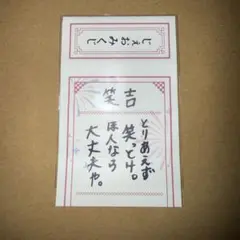 じぇおみくじ
笑吉
とりあえず
笑っとけ。
ほんなら
大丈夫や。